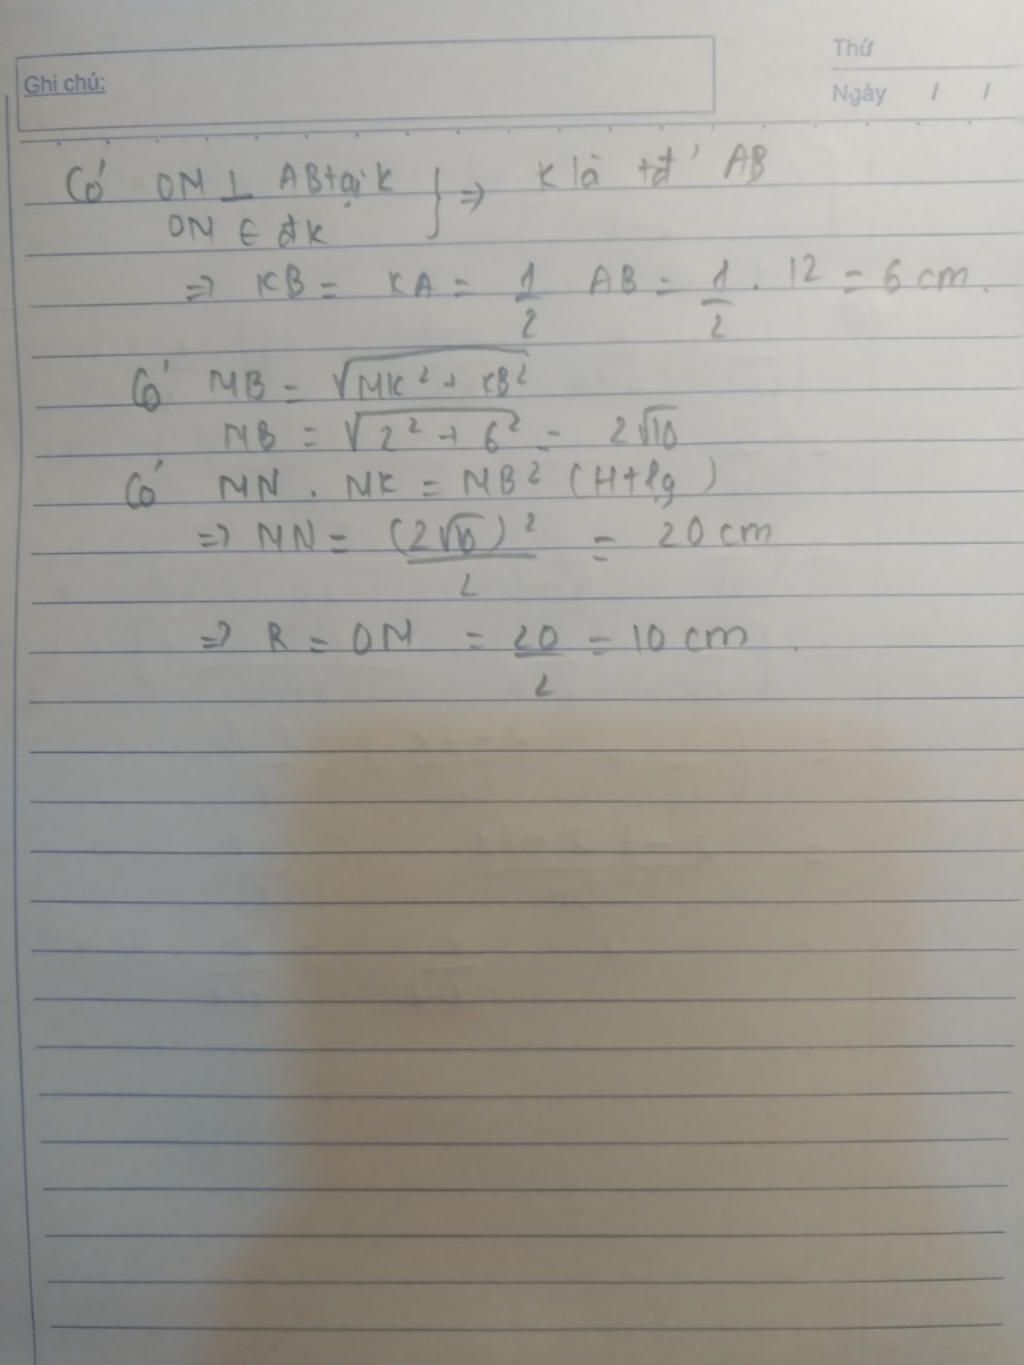 Ghi chú:
Thứ
Ngày / /
Có OM ⊥ AB tại K } ⇒ K là tđ' AB
OM ∈ đk
⇒ KB = KA = 1/2 AB = 1/2 . 12 = 6 cm.
Có MB = √(MK² + KB²)
MB = √(2² + 6²) = 2√10
Có MN . MK = MB² (Htlg)
⇒ MN = (2√10)²/2 = 20 cm
⇒ R = OM = 20/2 = 10 cm.